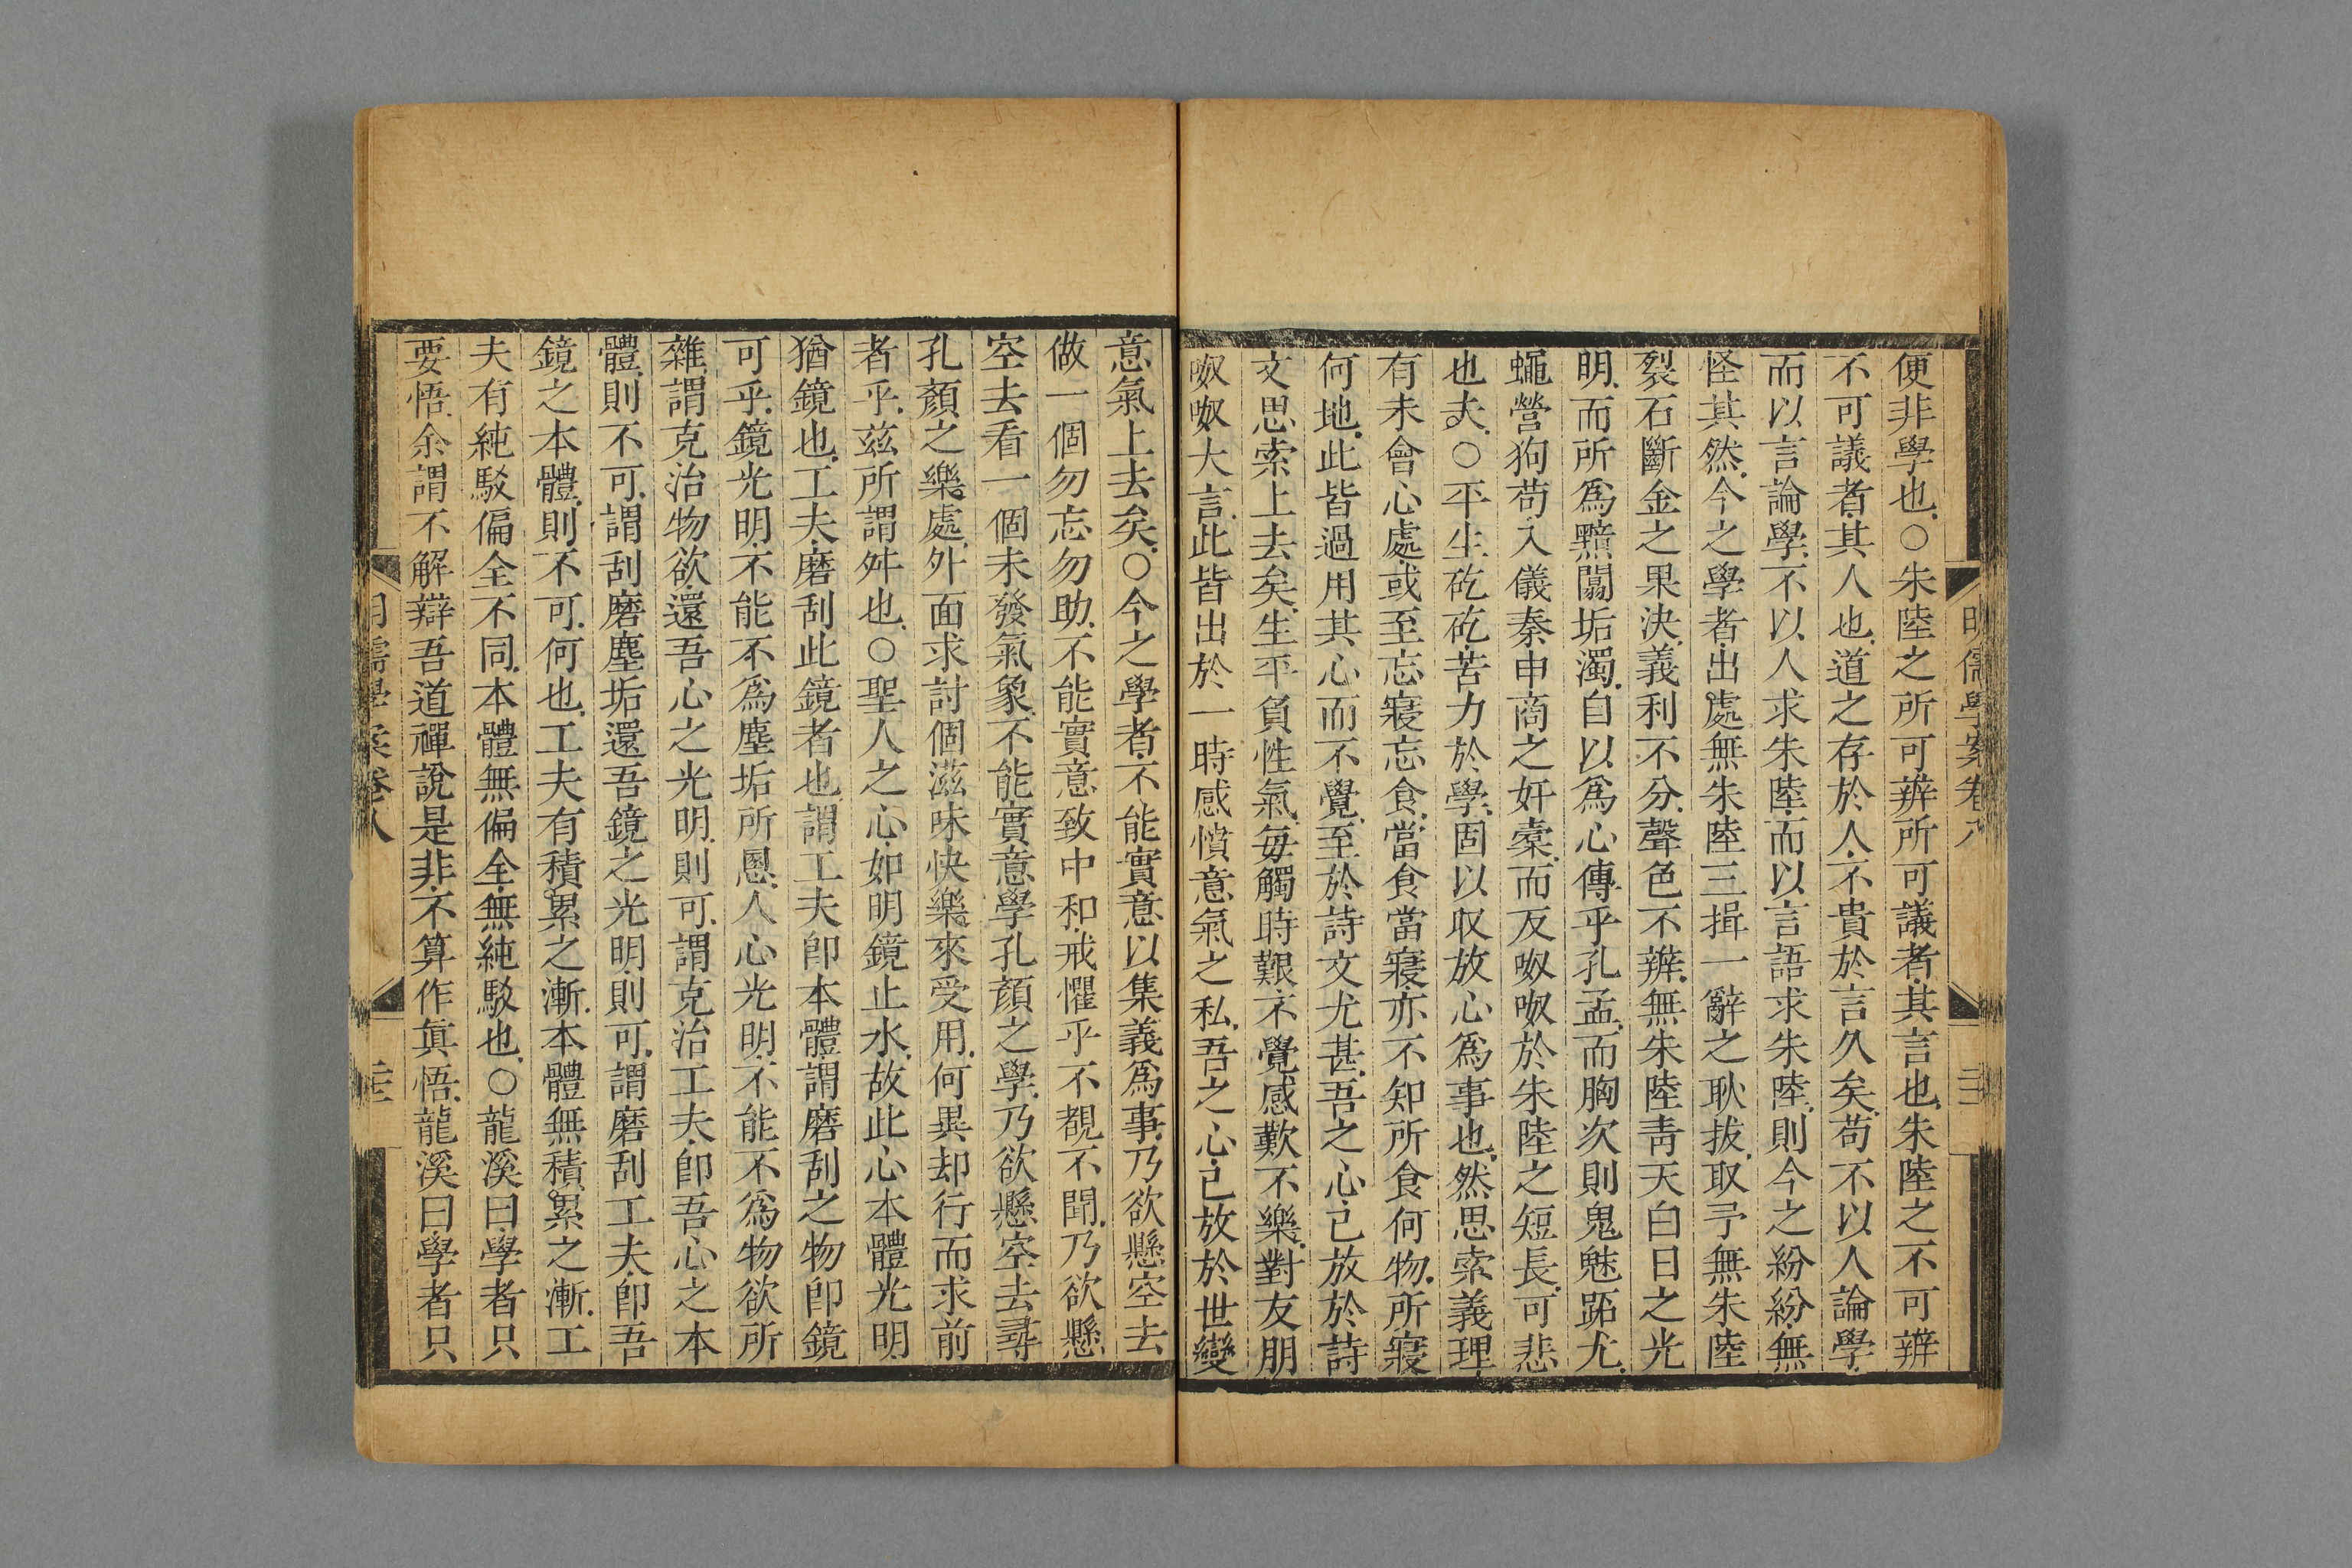 明儒學案卷八
便非學也○朱陸之所可辨所可議者其言也朱陸之不可辨
不可議者其人也道之存於人不貴於言久矣苟不以人論學
而以言論學不以人求朱陸而以言語求朱陸則今之紛紛無
怪其然今之學者出處無朱陸三揖一辭之耿拔取予無朱陸
裂石斷金之果決義利不分聲色不辨無朱陸青天白日之光
明而所爲黯闇垢濁自以爲心傳乎孔孟而胸次則鬼魅跖尤
蠅營狗苟入儀秦申商之奸橐而反呶呶於朱陸之短長可悲
也夫○平生矻矻苦力於學固以収放心爲事也然思索義理
有未會心處或至忘寢忘食當食當寢亦不知所食何物所寢
何地此皆過用其心而不覺至於詩文尤甚吾之心已放於詩
文思索上去矣生平負性氣每觸時艱不覺感歎不樂對友朋
呶呶大言此皆出於一時感憤意氣之私吾之心已放於世變
意氣上去矣○今之學者不能實意以集義爲事乃欲懸空去
做一個勿忘勿助不能實意致中和戒懼乎不覩不聞乃欲懸
空去看一個未發氣象不能實意學孔顏之學乃欲懸空去尋
孔顏之樂處外面求討個滋味快樂來受用何異却行而求前
者乎茲所謂舛也○聖人之心如明鏡止水故此心本體光明
猶鏡也工夫磨刮此鏡者也謂工夫卽本體謂磨刮之物卽鏡
可乎鏡光明不能不爲塵垢所慁人心光明不能不爲物欲所
雜謂克治物欲還吾心之光明則可謂克治工夫卽吾心之本
體則不可謂刮磨塵垢還吾鏡之光明則可謂磨刮工夫卽吾
鏡之本體則不可何也工夫有積累之漸本體無積累之漸工
夫有純駁偏全不同本體無偏全無純駁也○龍溪曰學者只
要悟余謂不解辯吾道禪說是非不算作眞悟龍溪曰學者只
明儒學案卷八